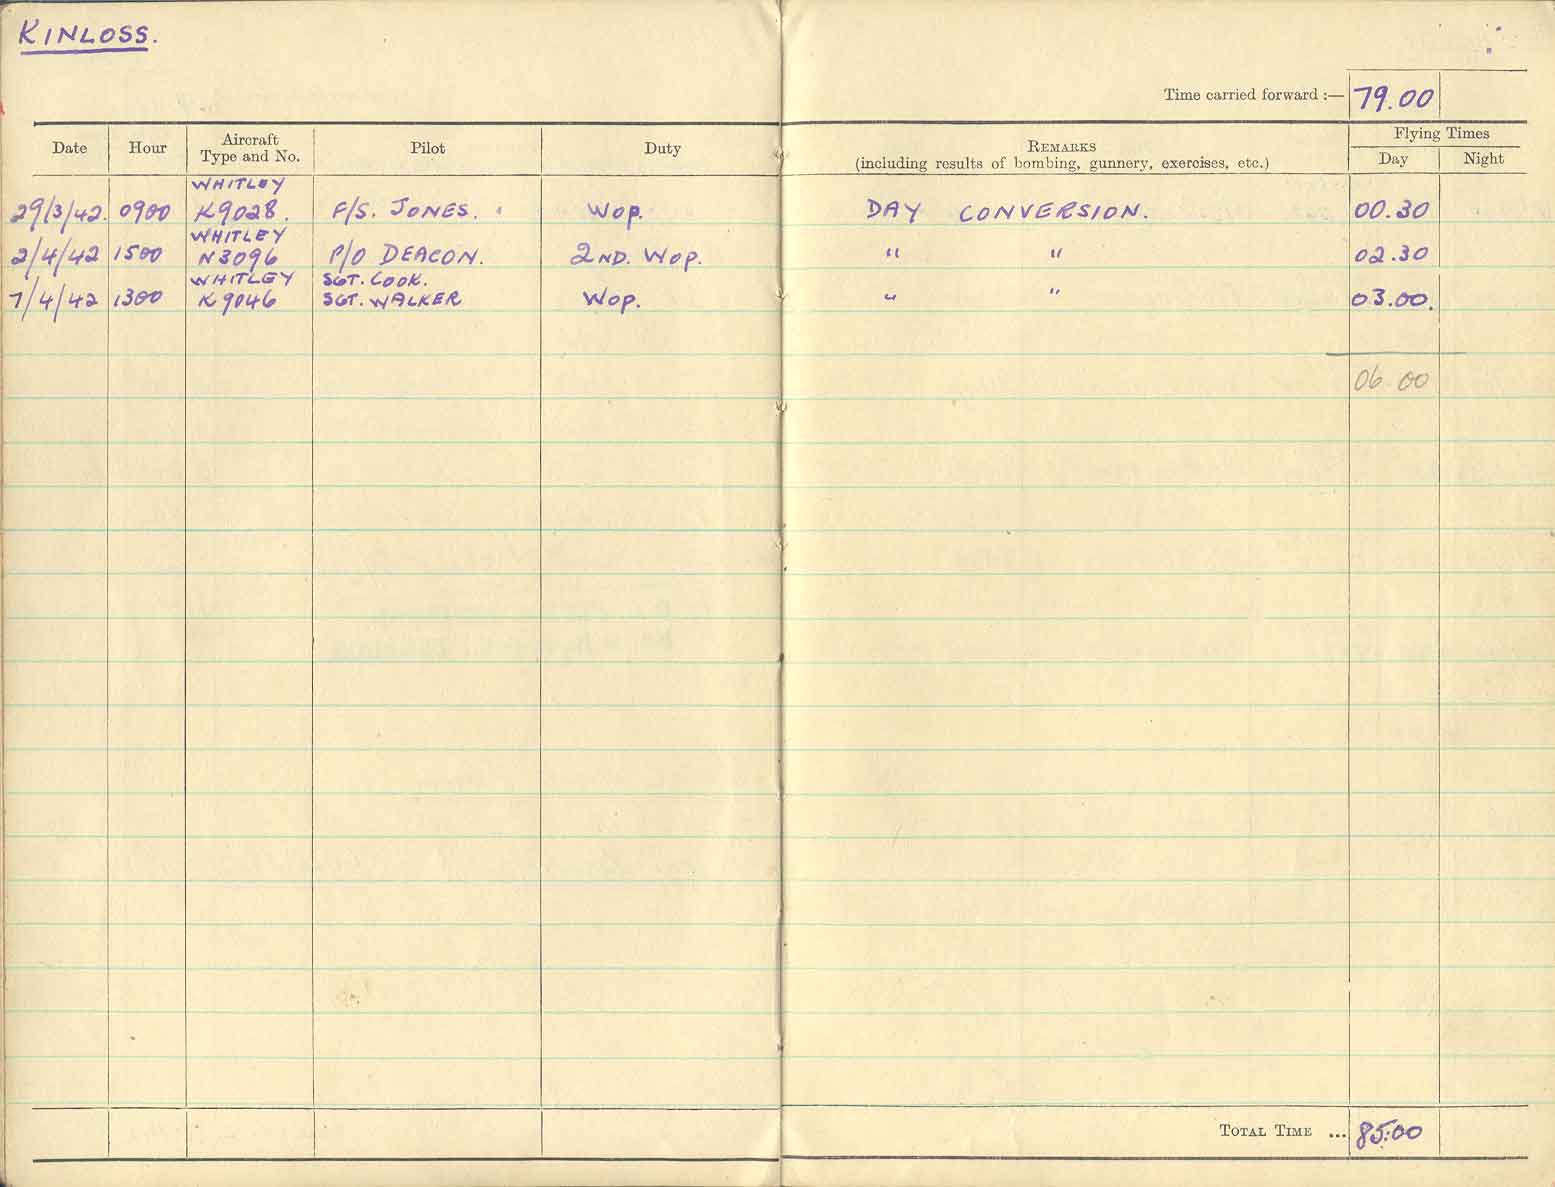 KINLOSS.
Time carried forward :— 79.00
Date Hour Aircraft Type and No. Pilot Duty REMARKS (including results of bombing, gunnery, exercises, etc.) Flying Times Day Night
WHITLEY
29/3/42. 0900 K9028. F/S. JONES. WOP. DAY CONVERSION. 00.30
WHITLEY
2/4/42 1500 N3096 P/O DEACON. 2ND. WOP. " " 02.30
WHITLEY SGT. COOK.
7/4/42 1300 K9046 SGT. WALKER WOP. " " 03.00.
06 00
TOTAL TIME ... 85.00